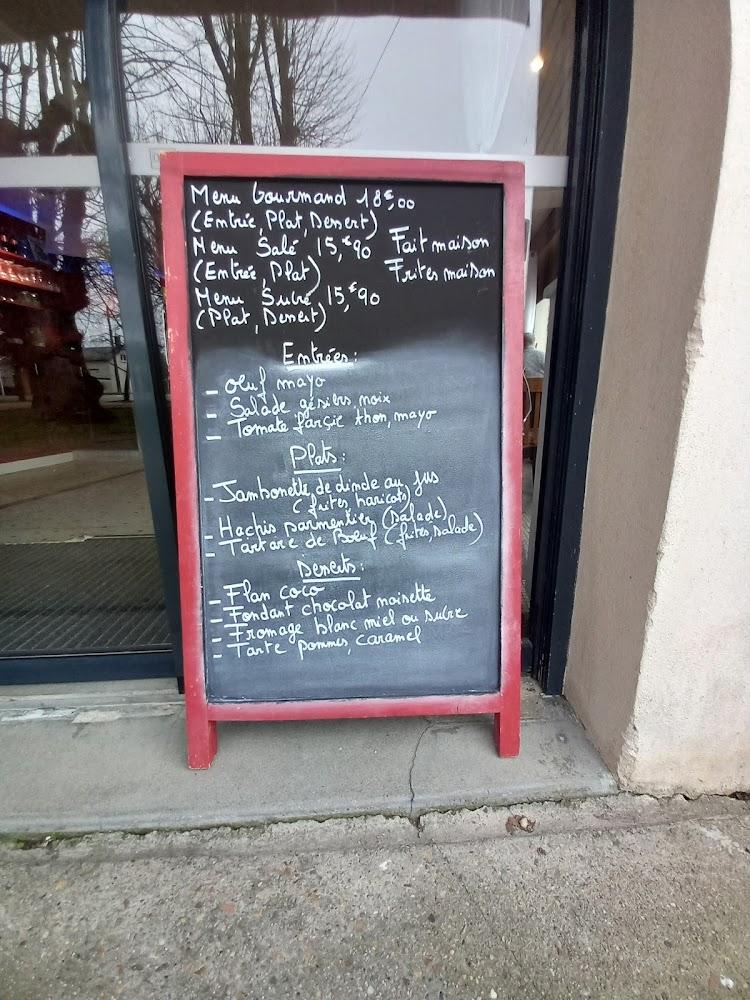 Menu Gourmand 18€,00
(Entrée, Plat, Dessert)
Menu Salé 15,€90 Fait maison
(Entrée, Plat) Frites maison
Menu Sucré 15,€90
(Plat, Dessert)
Entrées:
- Oeuf mayo
- Salade gésiers, noix
- Tomate farçie thon, mayo
Plats:
- Jambonette de dinde au jus
(frites, haricots)
- Hachis parmentier (salade)
- Tartare de Boeuf (frites, salade)
Desserts:
- Flan coco
- Fondant chocolat noisette
- Fromage blanc miel ou sucre
- Tarte pommes, caramel